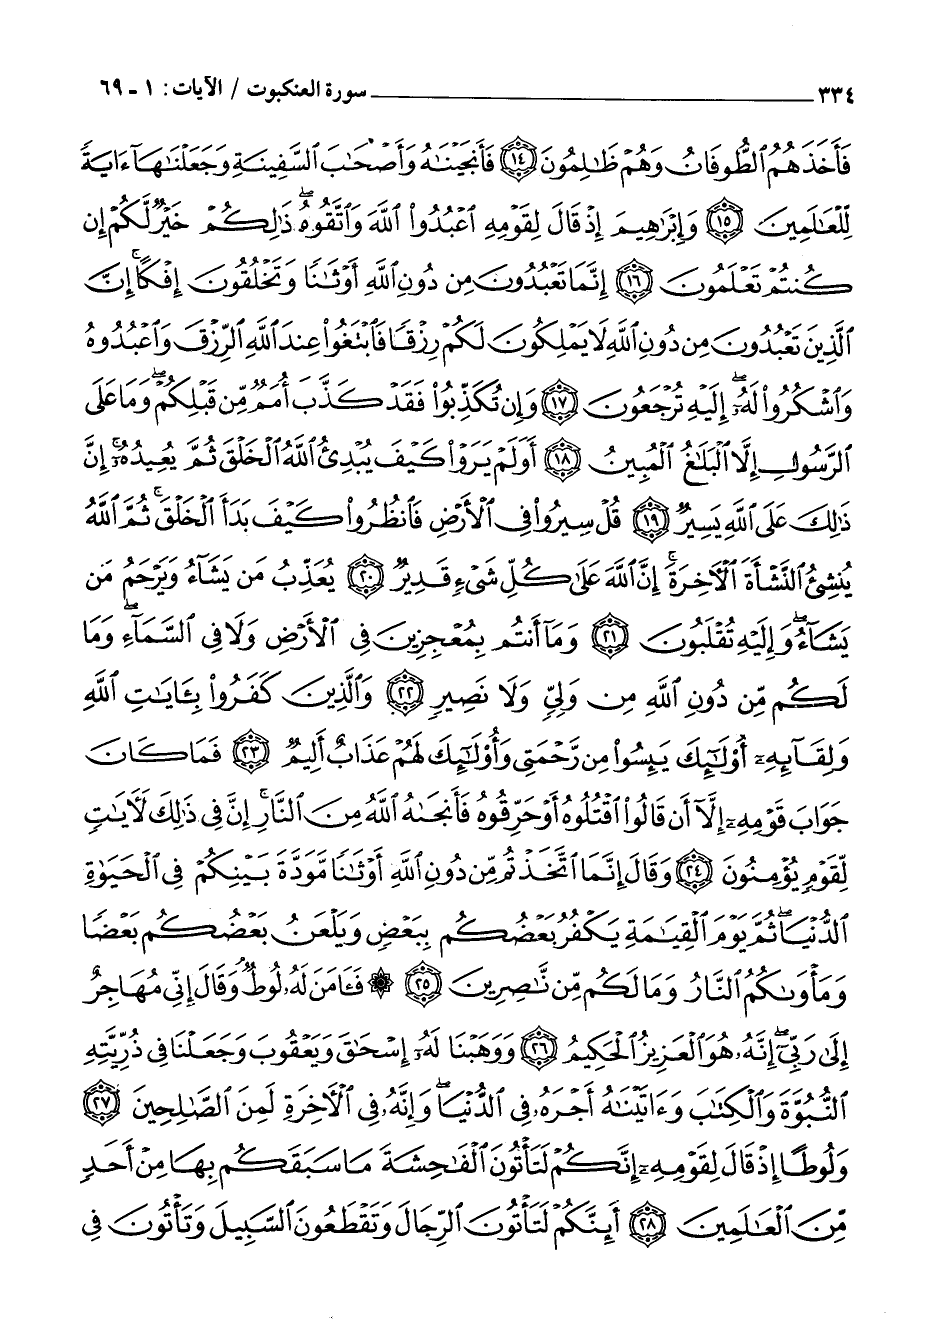 ٣٣٤ ـــــــ سورة العنكبوت / الآيات: ١ - ٦٩
فَأَخَذَهُمُ ٱلطُّوفَانُ وَهُمْ ظَـٰلِمُونَ ﴿١٤﴾ فَأَنجَيْنَـٰهُ وَأَصْحَـٰبَ ٱلسَّفِينَةِ وَجَعَلْنَـٰهَآ ءَايَةً
لِّلْعَـٰلَمِينَ ﴿١٥﴾ وَإِبْرَٰهِيمَ إِذْ قَالَ لِقَوْمِهِ ٱعْبُدُوا۟ ٱللَّهَ وَٱتَّقُوهُ ۖ ذَٰلِكُمْ خَيْرٌ لَّكُمْ إِن
كُنتُمْ تَعْلَمُونَ ﴿١٦﴾ إِنَّمَا تَعْبُدُونَ مِن دُونِ ٱللَّهِ أَوْثَـٰنًا وَتَخْلُقُونَ إِفْكًا ۚ إِنَّ
ٱلَّذِينَ تَعْبُدُونَ مِن دُونِ ٱللَّهِ لَا يَمْلِكُونَ لَكُمْ رِزْقًا فَٱبْتَغُوا۟ عِندَ ٱللَّهِ ٱلرِّزْقَ وَٱعْبُدُوهُ
وَٱشْكُرُوا۟ لَهُۥٓ ۖ إِلَيْهِ تُرْجَعُونَ ﴿١٧﴾ وَإِن تُكَذِّبُوا۟ فَقَدْ كَذَّبَ أُمَمٌ مِّن قَبْلِكُمْ ۖ وَمَا عَلَى
ٱلرَّسُولِ إِلَّا ٱلْبَلَـٰغُ ٱلْمُبِينُ ﴿١٨﴾ أَوَلَمْ يَرَوْا۟ كَيْفَ يُبْدِئُ ٱللَّهُ ٱلْخَلْقَ ثُمَّ يُعِيدُهُۥٓ ۚ إِنَّ
ذَٰلِكَ عَلَى ٱللَّهِ يَسِيرٌ ﴿١٩﴾ قُلْ سِيرُوا۟ فِى ٱلْأَرْضِ فَٱنظُرُوا۟ كَيْفَ بَدَأَ ٱلْخَلْقَ ۚ ثُمَّ ٱللَّهُ
يُنشِئُ ٱلنَّشْأَةَ ٱلْـَٔاخِرَةَ ۚ إِنَّ ٱللَّهَ عَلَىٰ كُلِّ شَىْءٍ قَدِيرٌ ﴿٢٠﴾ يُعَذِّبُ مَن يَشَآءُ وَيَرْحَمُ مَن
يَشَآءُ ۖ وَإِلَيْهِ تُقْلَبُونَ ﴿٢١﴾ وَمَآ أَنتُم بِمُعْجِزِينَ فِى ٱلْأَرْضِ وَلَا فِى ٱلسَّمَآءِ ۖ وَمَا
لَكُم مِّن دُونِ ٱللَّهِ مِن وَلِىٍّ وَلَا نَصِيرٍ ﴿٢٢﴾ وَٱلَّذِينَ كَفَرُوا۟ بِـَٔايَـٰتِ ٱللَّهِ
وَلِقَآئِهِۦٓ أُو۟لَـٰٓئِكَ يَئِسُوا۟ مِن رَّحْمَتِى وَأُو۟لَـٰٓئِكَ لَهُمْ عَذَابٌ أَلِيمٌ ﴿٢٣﴾ فَمَا كَانَ
جَوَابَ قَوْمِهِۦٓ إِلَّآ أَن قَالُوا۟ ٱقْتُلُوهُ أَوْ حَرِّقُوهُ فَأَنجَىٰهُ ٱللَّهُ مِنَ ٱلنَّارِ ۚ إِنَّ فِى ذَٰلِكَ لَـَٔايَـٰتٍ
لِّقَوْمٍ يُؤْمِنُونَ ﴿٢٤﴾ وَقَالَ إِنَّمَا ٱتَّخَذْتُم مِّن دُونِ ٱللَّهِ أَوْثَـٰنًا مَّوَدَّةَ بَيْنِكُمْ فِى ٱلْحَيَوٰةِ
ٱلدُّنْيَا ۖ ثُمَّ يَوْمَ ٱلْقِيَـٰمَةِ يَكْفُرُ بَعْضُكُم بِبَعْضٍ وَيَلْعَنُ بَعْضُكُم بَعْضًا
وَمَأْوَىٰكُمُ ٱلنَّارُ وَمَا لَكُم مِّن نَّـٰصِرِينَ ﴿٢٥﴾ ۞ فَـَٔامَنَ لَهُۥ لُوطٌ ۘ وَقَالَ إِنِّى مُهَاجِرٌ
إِلَىٰ رَبِّىٓ ۖ إِنَّهُۥ هُوَ ٱلْعَزِيزُ ٱلْحَكِيمُ ﴿٢٦﴾ وَوَهَبْنَا لَهُۥٓ إِسْحَـٰقَ وَيَعْقُوبَ وَجَعَلْنَا فِى ذُرِّيَّتِهِ
ٱلنُّبُوَّةَ وَٱلْكِتَـٰبَ وَءَاتَيْنَـٰهُ أَجْرَهُۥ فِى ٱلدُّنْيَا ۖ وَإِنَّهُۥ فِى ٱلْـَٔاخِرَةِ لَمِنَ ٱلصَّـٰلِحِينَ ﴿٢٧﴾
وَلُوطًا إِذْ قَالَ لِقَوْمِهِۦٓ إِنَّكُمْ لَتَأْتُونَ ٱلْفَـٰحِشَةَ مَا سَبَقَكُم بِهَا مِنْ أَحَدٍ
مِّنَ ٱلْعَـٰلَمِينَ ﴿٢٨﴾ أَئِنَّكُمْ لَتَأْتُونَ ٱلرِّجَالَ وَتَقْطَعُونَ ٱلسَّبِيلَ وَتَأْتُونَ فِى